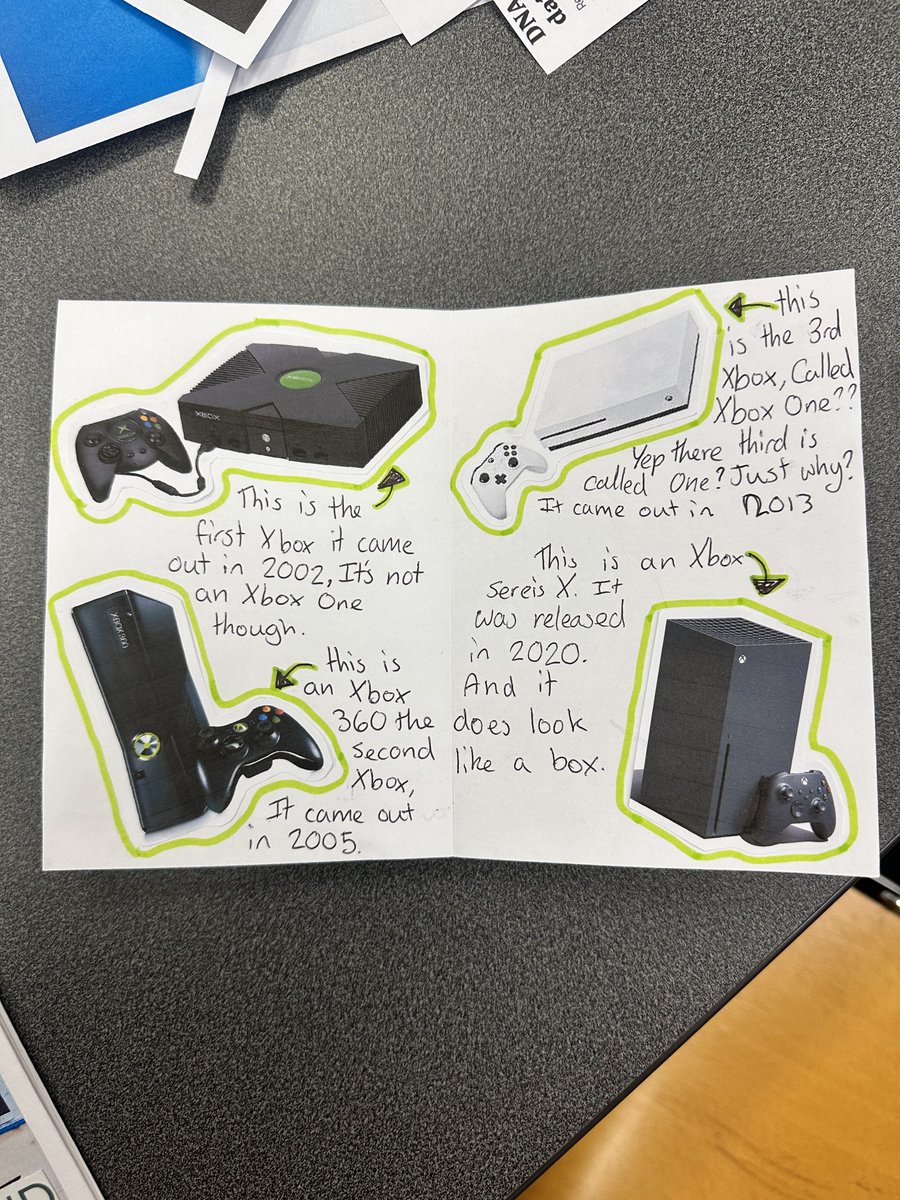 DNA
da
Re
XBOX
XBOX
This is the
first Xbox it came
out in 2002, It's not
an Xbox One
though.
XBOX 360
this is
an Xbox
360 the
second
Xbox,
It came out
in 2005.
this
is the 3rd
Xbox, Called
Xbox One??
Yep there third is
called One? Just why?
It came out in 2013
This is an Xbox
Sereis X. It
was released
in 2020.
And it
does look
like a box.